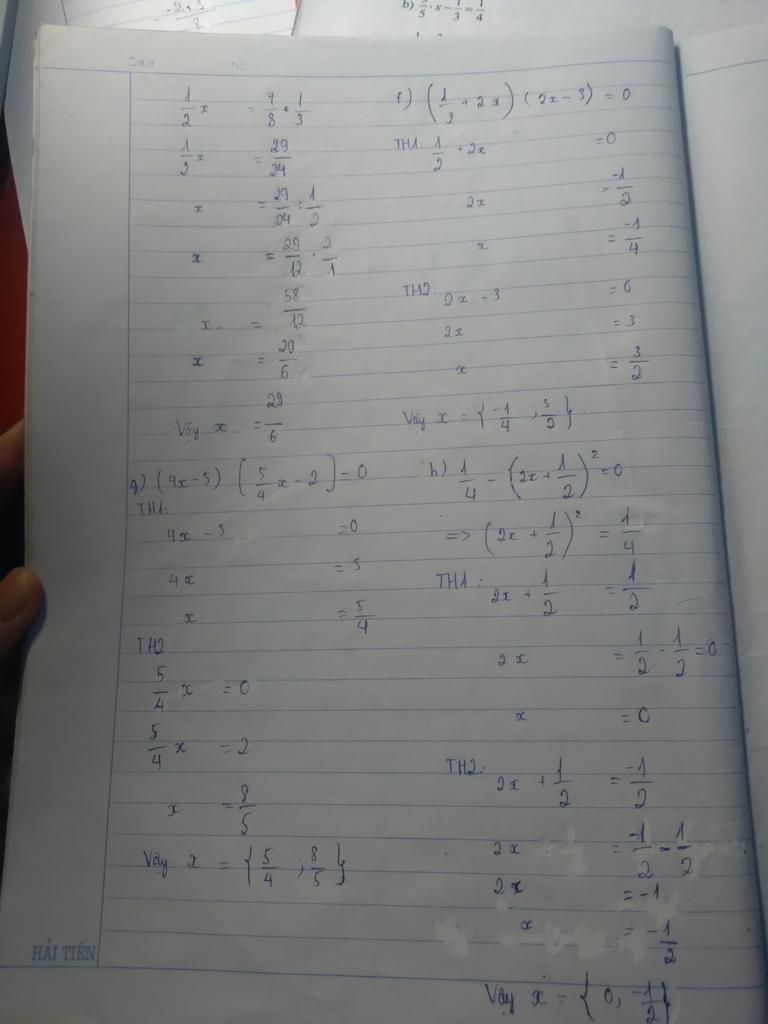 -2 . 5
8
b) 3/5 . x - 1/3 = 1/4
Date No
1/2 x = 7/8 + 1/3
1/2 x = 29/24
x = 29/24 : 1/2
x = 29/12 . 2/1
x = 58/12
x = 29/6
Vậy x = 29/6
f) (1/2 + 2x) (2x - 3) = 0
TH1: 1/2 + 2x = 0
2x = -1/2
x = -1/4
TH2: 2x - 3 = 0
2x = 3
x = 3/2
Vậy x = {-1/4 ; 3/2}
g) (4x - 5) (5/4 x - 2) = 0
TH1:
4x - 5 = 0
4x = 5
x = 5/4
TH2:
5/4 x = 0
5/4 x = 2
x = 8/5
Vậy x = {5/4 ; 8/5}
h) 1/4 - (2x + 1/2)² = 0
=> (2x + 1/2)² = 1/4
TH1: 2x + 1/2 = 1/2
2x = 1/2 - 1/2 = 0
x = 0
TH2: 2x + 1/2 = -1/2
2x = -1/2 - 1/2
2x = -1
x = -1/2
Vậy x = {0, -1/2}
HẢI TIẾN